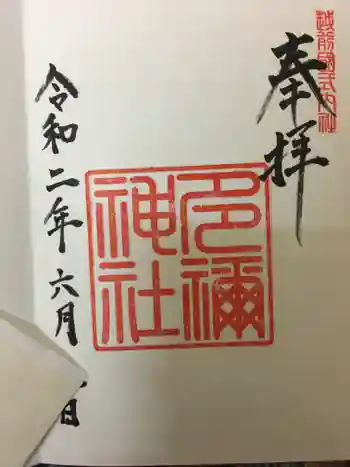 越前國式内社
奉拝
多禰
神社
令和二年六月
日